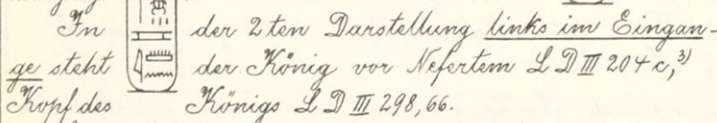 In der 2ten Darstellung links im Eingan-
ge steht der König vor Nefertem L D III 204 c,³⁾
Kopf des Königs L D III 298,66.